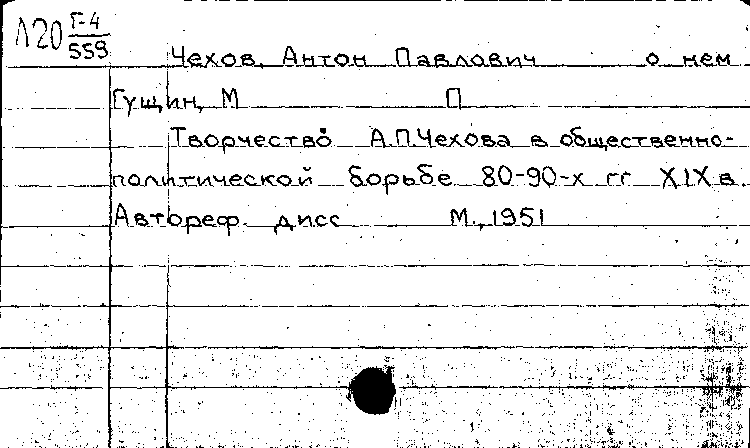 Л20 Г-4
559
Чехов, Антон Павлович о нем
Гущин, М П
Творчество А.П.Чехова в общественно-
политической борьбе 80-90-х гг XIX в.
Автореф. дисс М., 1951